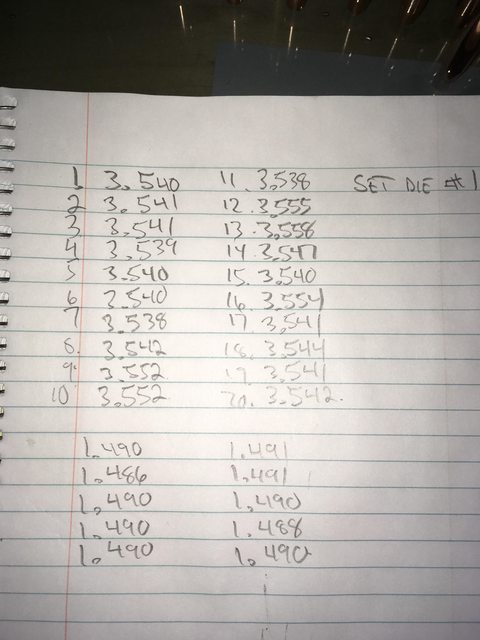 1 3.540 11. 3.538 SET DIE #1
2 3.541 12. 3.555
3 3.541 13. 3.558
4 3.539 14. 3.547
5 3.540 15. 3.540
6 3.540 16. 3.554
7 3.538 17. 3.541
8. 3.542 18. 3.544
9. 3.552 19. 3.541
10 3.552 20. 3.542.
1.490 1.491
1.486 1.491
1.490 1.490
1.490 1.488
1.490 1.490